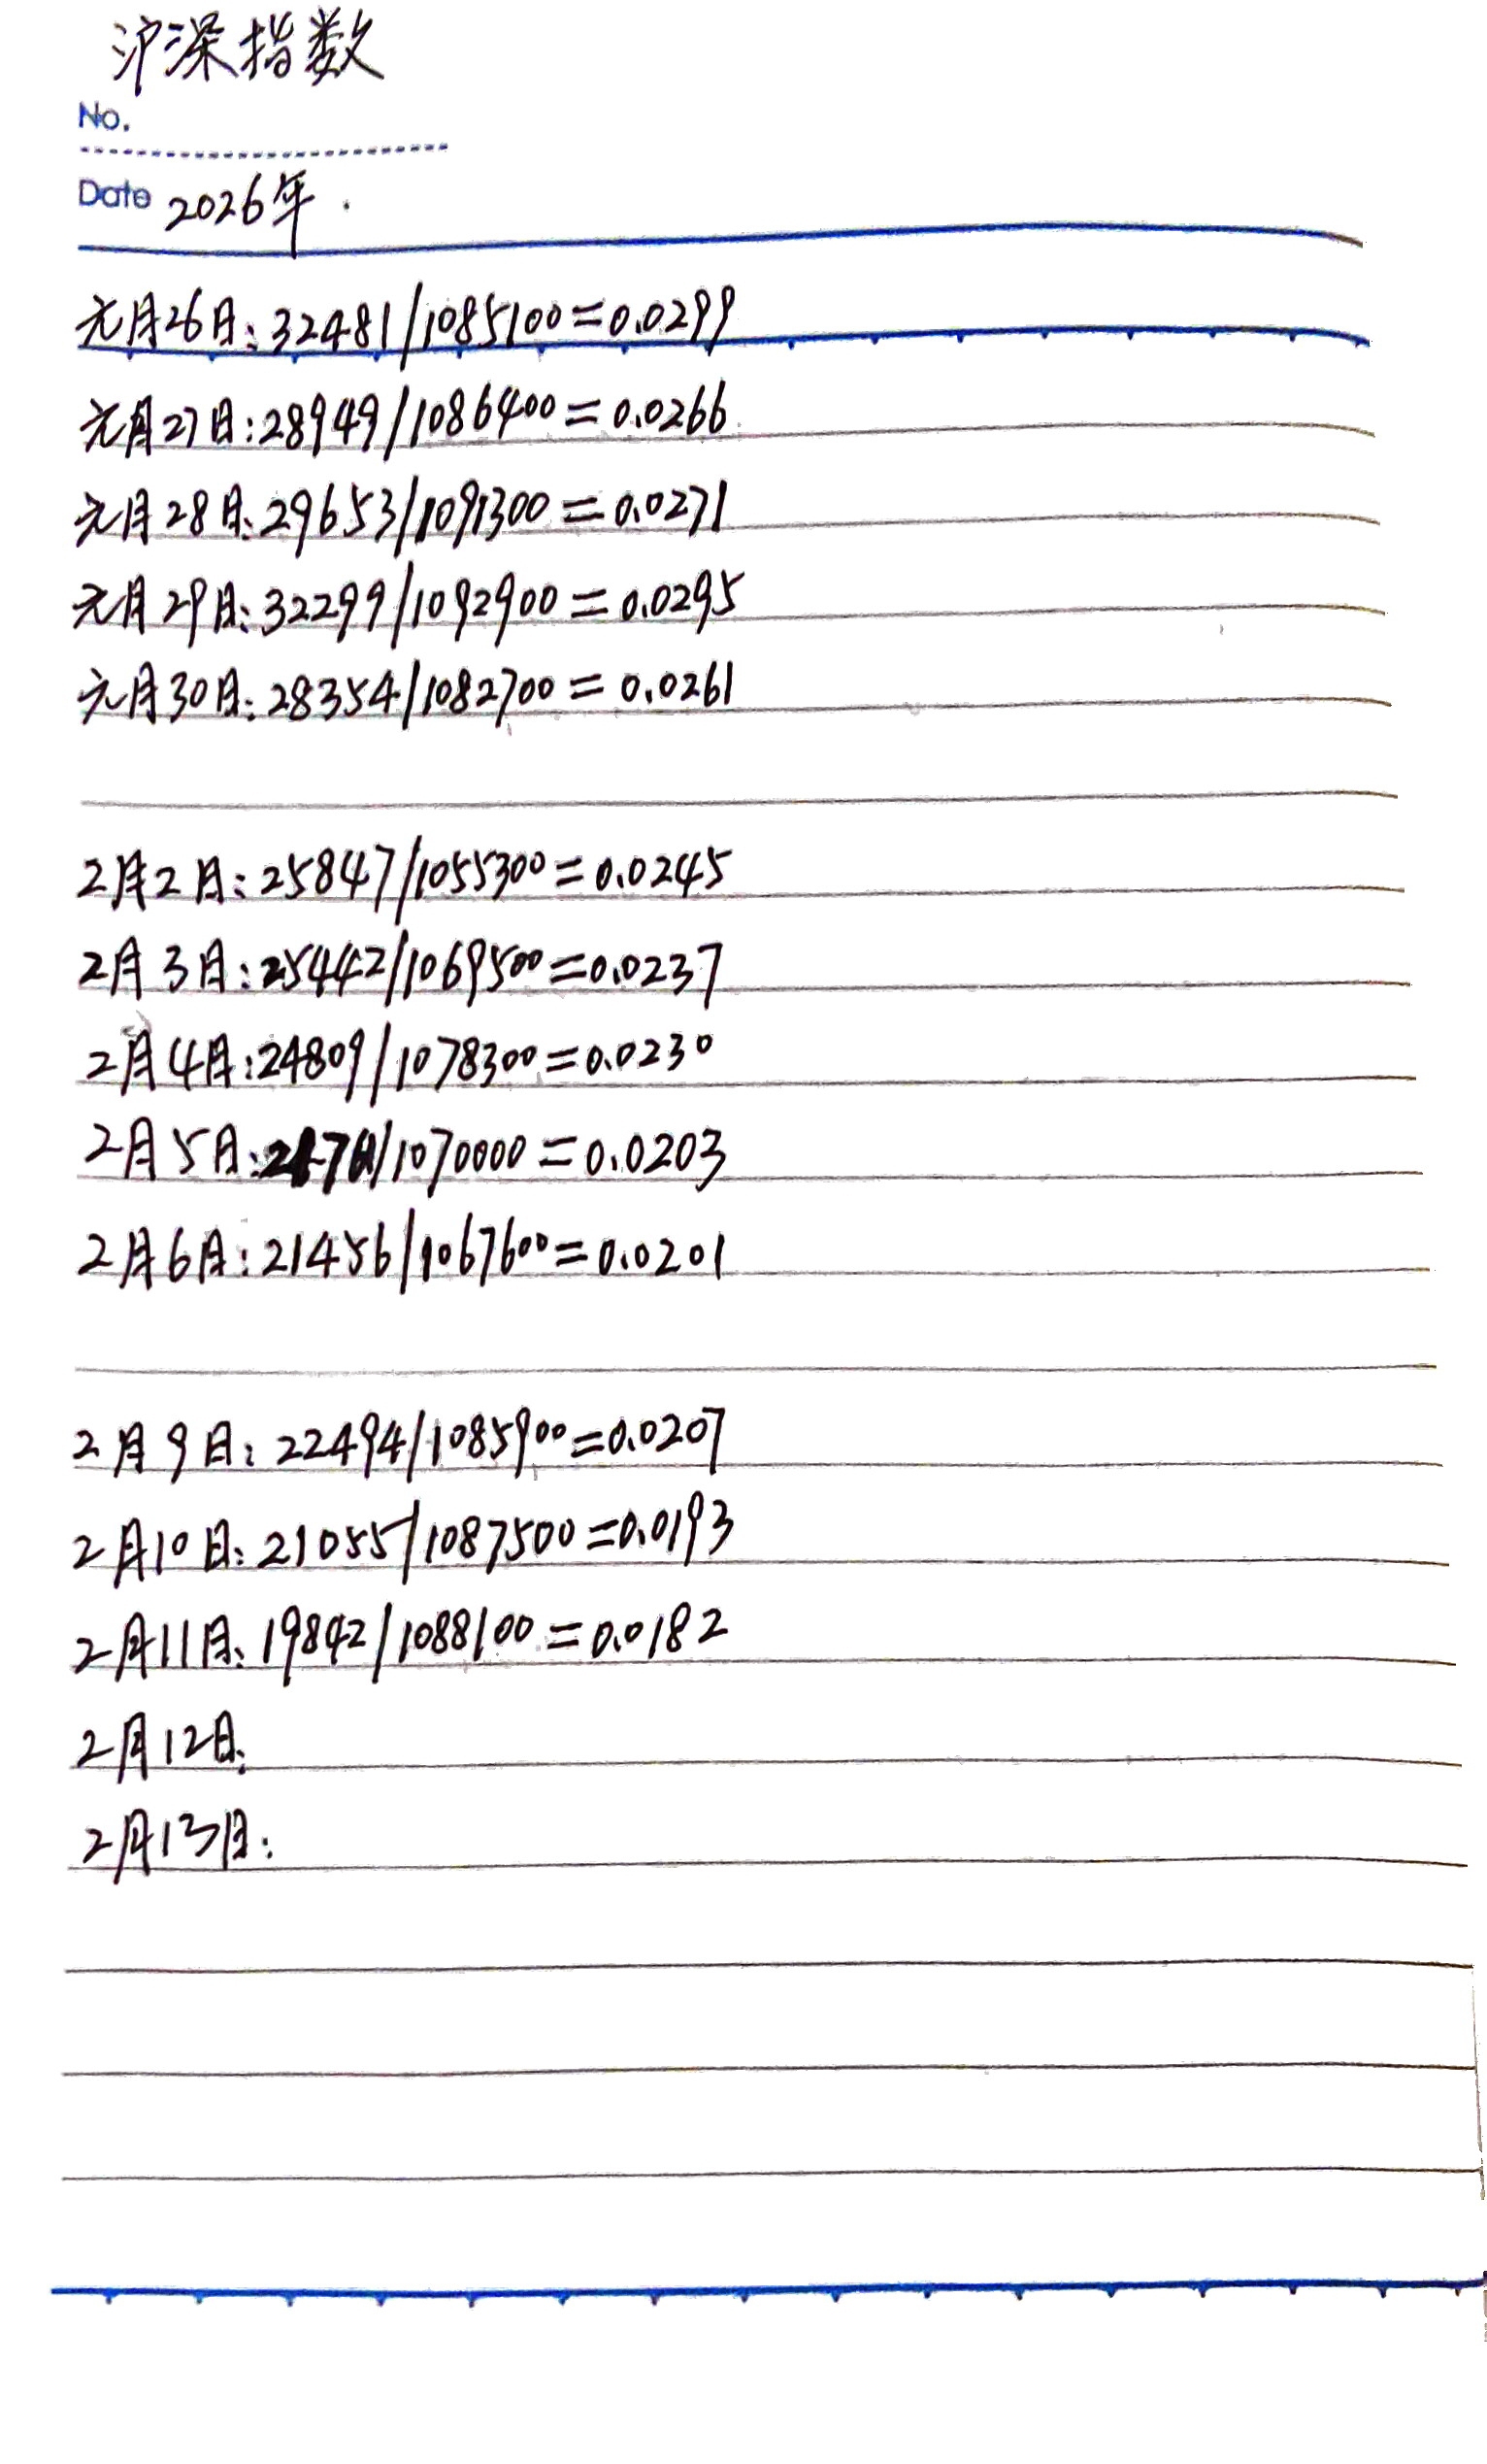 沪深指数
No.
Date 2026年.
元月26日:32481/1085100=0.0299
元月27日:28949/1086400=0.0266
元月28日:29653/1091300=0.0271
元月29日:32299/1092900=0.0295
元月30日:28354/1082700=0.0261
2月2日:25847/1055300=0.0245
2月3日:25442/1069500=0.0237
2月4日:24809/1078300=0.0230
2月5日:/1070000=0.0203
2月6日:21456/1067600=0.0201
2月9日:22494/1085900=0.0207
2月10日:21055/1087500=0.0193
2月11日:19842/1088100=0.0182
2月12日:
2月13日: